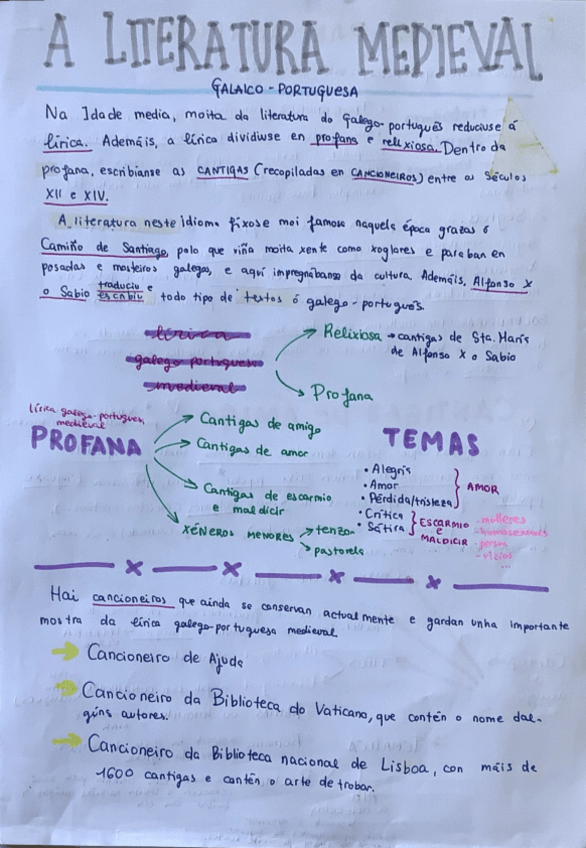 A LITERATURA MEDIEVAL
GALAICO-PORTUGUESA
Na Idade media, moita da literatura do Galego-portugués reduciuse á
lírica. Ademáis, a lírica dividiuse en profana e relixiosa. Dentro da
profana, escribíanse as CANTIGAS (recopiladas en CANCIONEIROS) entre os séculos
XII e XIV.
A literatura neste idioma fíxose moi famosa naquela época grazas ó
Camiño de Santiago, polo que viña moita xente como xoglares e paraban en
posadas e mosteiros galegos, e aquí impregnábanse da cultura. Ademáis, Alfonso X
o Sabio traduciu e escribiu todo tipo de textos ó galego-portugués.
lírica
galego portuguesa
medieval
Relixiosa → cantigas de Sta. María
de Alfonso X o Sabio
Profana
lírica galego-portuguesa
medieval
PROFANA
Cantigas de amigo
Cantigas de amor
Cantigas de escarmio
e maldicir
XÉNEROS MENORES → tenzo
→ pastorela
TEMAS
• Alegría
• Amor
• Pérdida/tristeza
AMOR
• Crítica
• Sátira
ESCARMIO
e
MALDICIR
- mulleres
- homosexuais
- vicios
...
Hai cancioneiros que ainda se conservan actualmente e gardan unha importante
mostra da lírica galego-portuguesa medieval
→ Cancioneiro de Ajuda
→ Cancioneiro da Biblioteca do Vaticano, que contén o nome dal-
gúns autores.
→ Cancioneiro da Biblioteca nacional de Lisboa, con máis de
1600 cantigas e contén o arte de trobar.